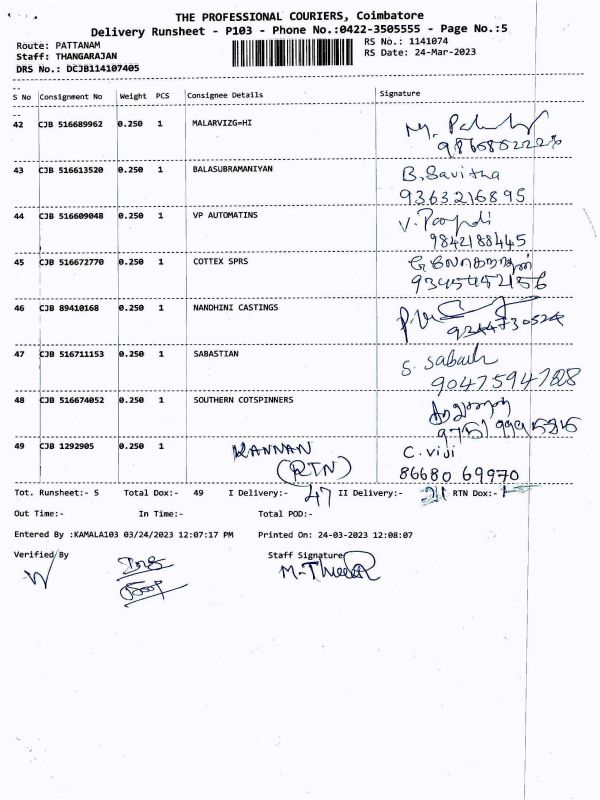 THE PROFESSIONAL COURIERS, Coimbatore
Delivery Runsheet - P103 - Phone No.:0422-3505555 - Page No.:5
Route: PATTANAM
RS No.: 1141074
Staff: THANGARAJAN
RS Date: 24-Mar-2023
DRS No.: DCJB114107405
S No Consignment No Weight PCS Consignee Details Signature
42 CJB 516689962 0.250 1 MALARVIZG=HI
43 CJB 516613520 0.250 1 BALASUBRAMANIYAN B. Savitha
9363216895
44 CJB 516609048 0.250 1 VP AUTOMATINS
9842188445
45 CJB 516672770 0.250 1 COTTEX SPRS
9345452156
46 CJB 89410168 0.250 1 NANDHINI CASTINGS
47 CJB 516711153 0.250 1 SABASTIAN
48 CJB 516674052 0.250 1 SOUTHERN COTSPINNERS
49 CJB 1292905 0.250 1 KANNAN C. Viji
(RTN) 86680 69970
Tot. Runsheet:- 5 Total Dox:- 49 I Delivery:- 47 II Delivery:- RTN Dox:-
Out Time:- In Time:- Total POD:-
Entered By :KAMALA103 03/24/2023 12:07:17 PM Printed On: 24-03-2023 12:08:07
Verified By Staff Signature